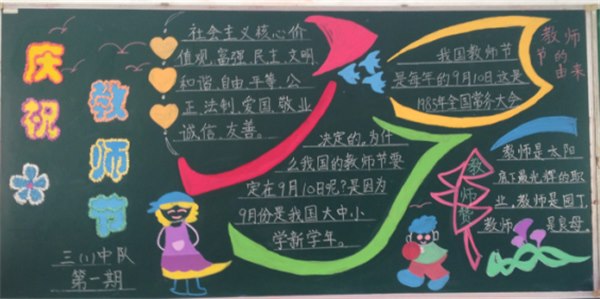 庆祝
教师节
三(1)中队
第一期
社会主义核心价
值观,富强,民主,文明,
和谐,自由,平等,公
正,法制,爱国,敬业
诚信,友善。
教师
节的
由来
我国教师节
是每年的9月10日,这是
1985年全国常务大会
决定的,为什
么我国的教师节要
定在9月10日呢?是因为
9月份是我国大中小
学新学年。
教师赞
教师是太阳
底下最光辉的职
业,教师是园丁,
教师 是良母,